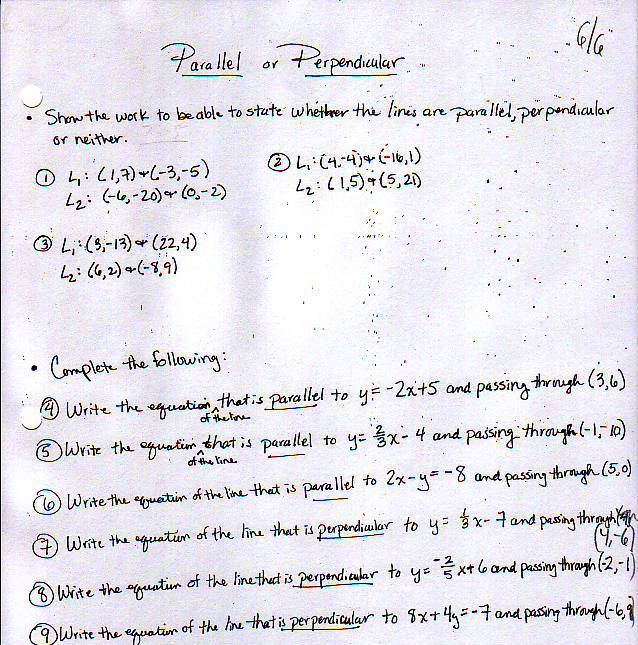 6/6
Parallel or Perpendicular
• Show the work to be able to state whether the lines are parallel, perpendicular
or neither.
① L₁: (1,7) & (-3,-5)
L₂: (-6,-20) & (0,-2)
② L₁: (4,-4) & (-16,1)
L₂: (1,5) & (5,21)
③ L₁: (3,-13) & (22,4)
L₂: (6,2) & (-8,9)
• Complete the following:
④ Write the equation of the line that is parallel to y = -2x+5 and passing through (3,6)
⑤ Write the equation of the line that is parallel to y = 2/3x - 4 and passing through (-1,-10)
⑥ Write the equation of the line that is parallel to 2x-y = -8 and passing through (5,0)
⑦ Write the equation of the line that is perpendicular to y = 1/3x - 7 and passing through
(4,-6)
⑧ Write the equation of the line that is perpendicular to y = -2/5x+6 and passing through (-2,-1)
⑨ Write the equation of the line that is perpendicular to 8x+4y = -7 and passing through (-6,